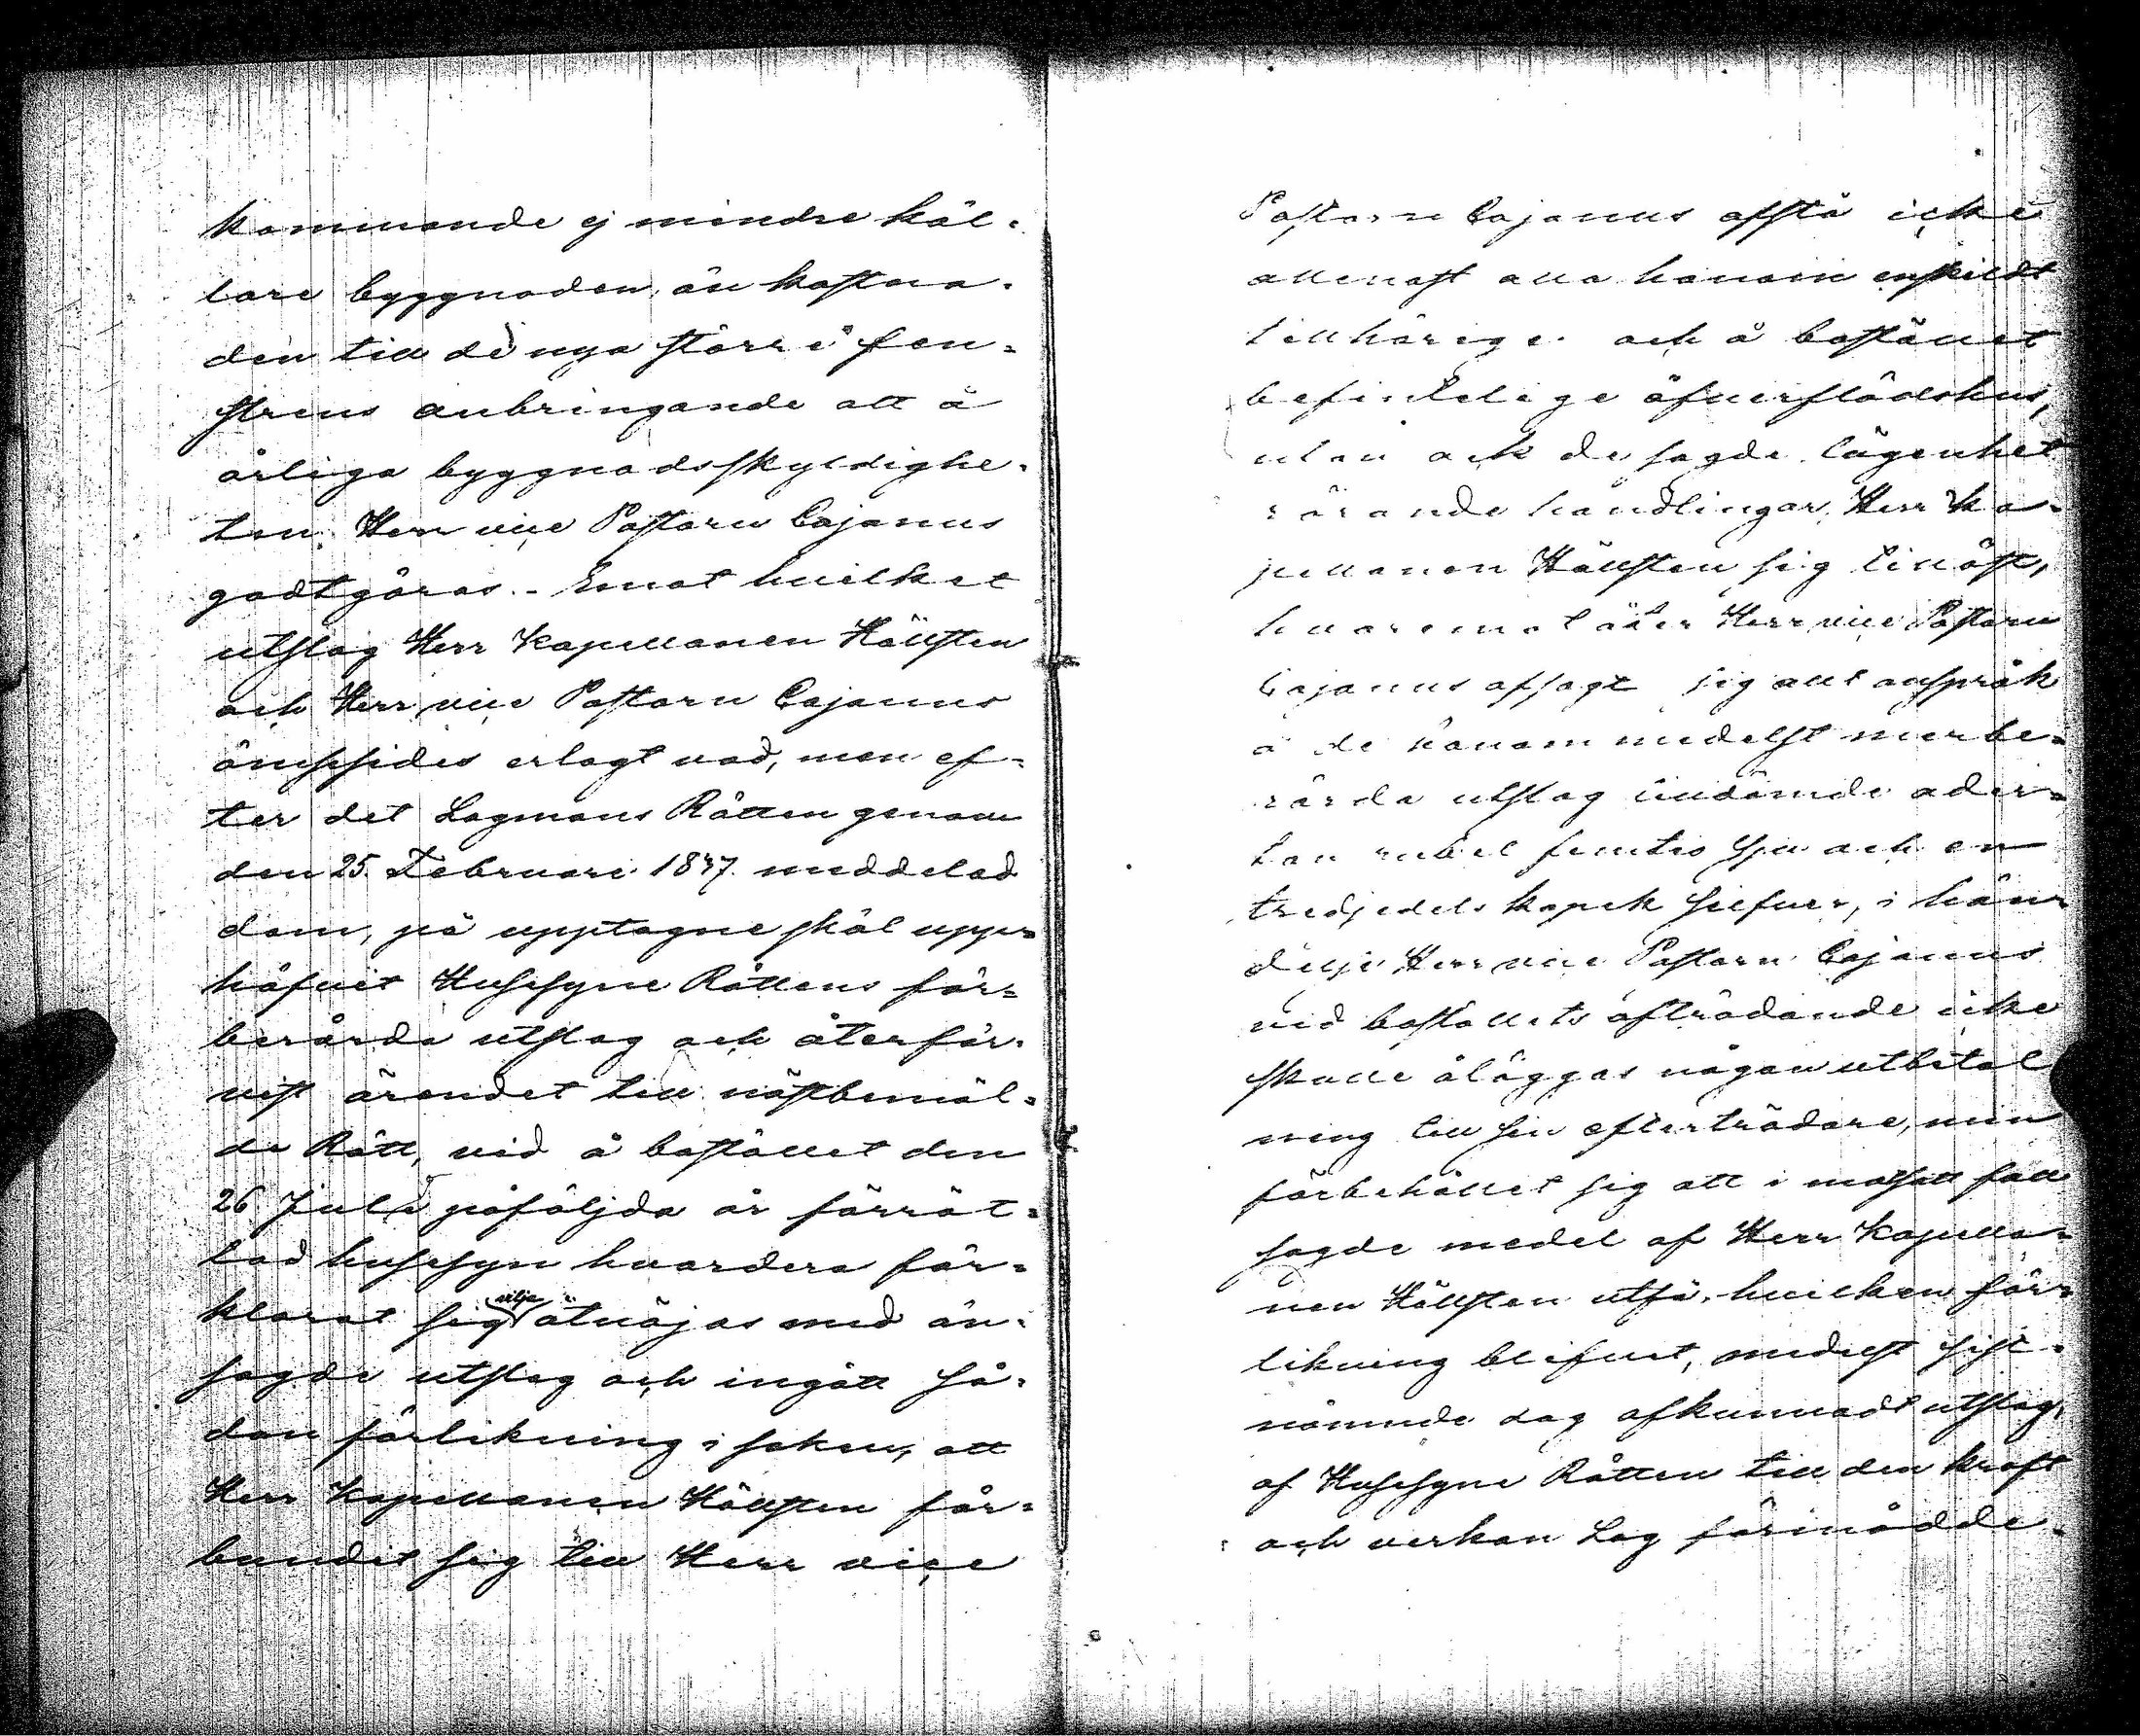 kommande ej mindre käl-
lare byggnaden, än kostna-
den till de nya större fen-
strens anbringande att å
årliga byggnadsskyldighe-
ten Herr vice Pastorn Cajanus
godtgöras. - Emot hvilket
utslag Herr Kapellanen Hällsten
och Herr vice Pastorn Cajanus
ömsesides erlagt vad, men ef-
ter det Lagmans Rätten genom
den 25. Februari 1847 meddelad
dom, på upptagne skäl upp-
häfvit Husesyne Rättens för-
berörda utslag och återför-
vist ärendet till nästbemäl-
de Rätt, vid å bostället den
26 Juli påföljda år förrät-
tad husesyn hvardera för-
klarat sig vilja åtnöjas med än-
sagde utslag och ingått så-
dan förlikning i saken, att
Herr Kapellanen Hällsten för-
bundit sig till Herr vice
Pastorn Cajanus afstå icke
allenast alla honom enskildt
tillhörige och å bostället
befintelige öfverflödshus,
utan ock de sagde lägenhet
rörande handlingar, Herr Ka-
pellanen Hällsten sig tillöst,
hvaremot åter Herr vice Pastorn
Cajanus afsagt sig allt anspråk
å de honom medelst merbe-
rörda utslag tilldömde ader-
ton rubel femtio sju och en
tredjedels kopek silfver, i hän-
delse Herr vice Pastorn Cajanus
vid boställets afträdande icke
skulle åläggas någon utbetal
ning till sin efterträdare, men
förbehållet sig att i motsatt fall
sagde medel af Herr Kapella-
nen Hällsten utfå, hvilken för-
likning blifvit, medelst sist-
nämnde dag afkunnadt utslag,
af Husesyne Rätten till den kraft
och verkan Lag förmådde